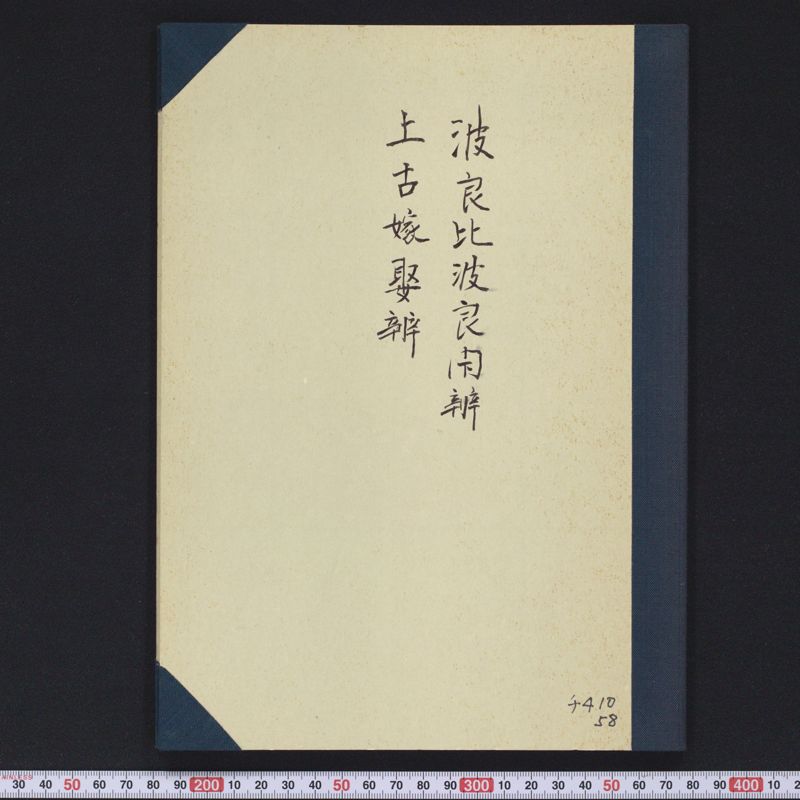 波良比波良閇辨
上古嫁娶辨
チ410
58
30 40 50 60 70 80 90 200 10 20 30 40 50 60 70 80 90 300 10 20 30 40 50 60 70 80 90 400 10 2